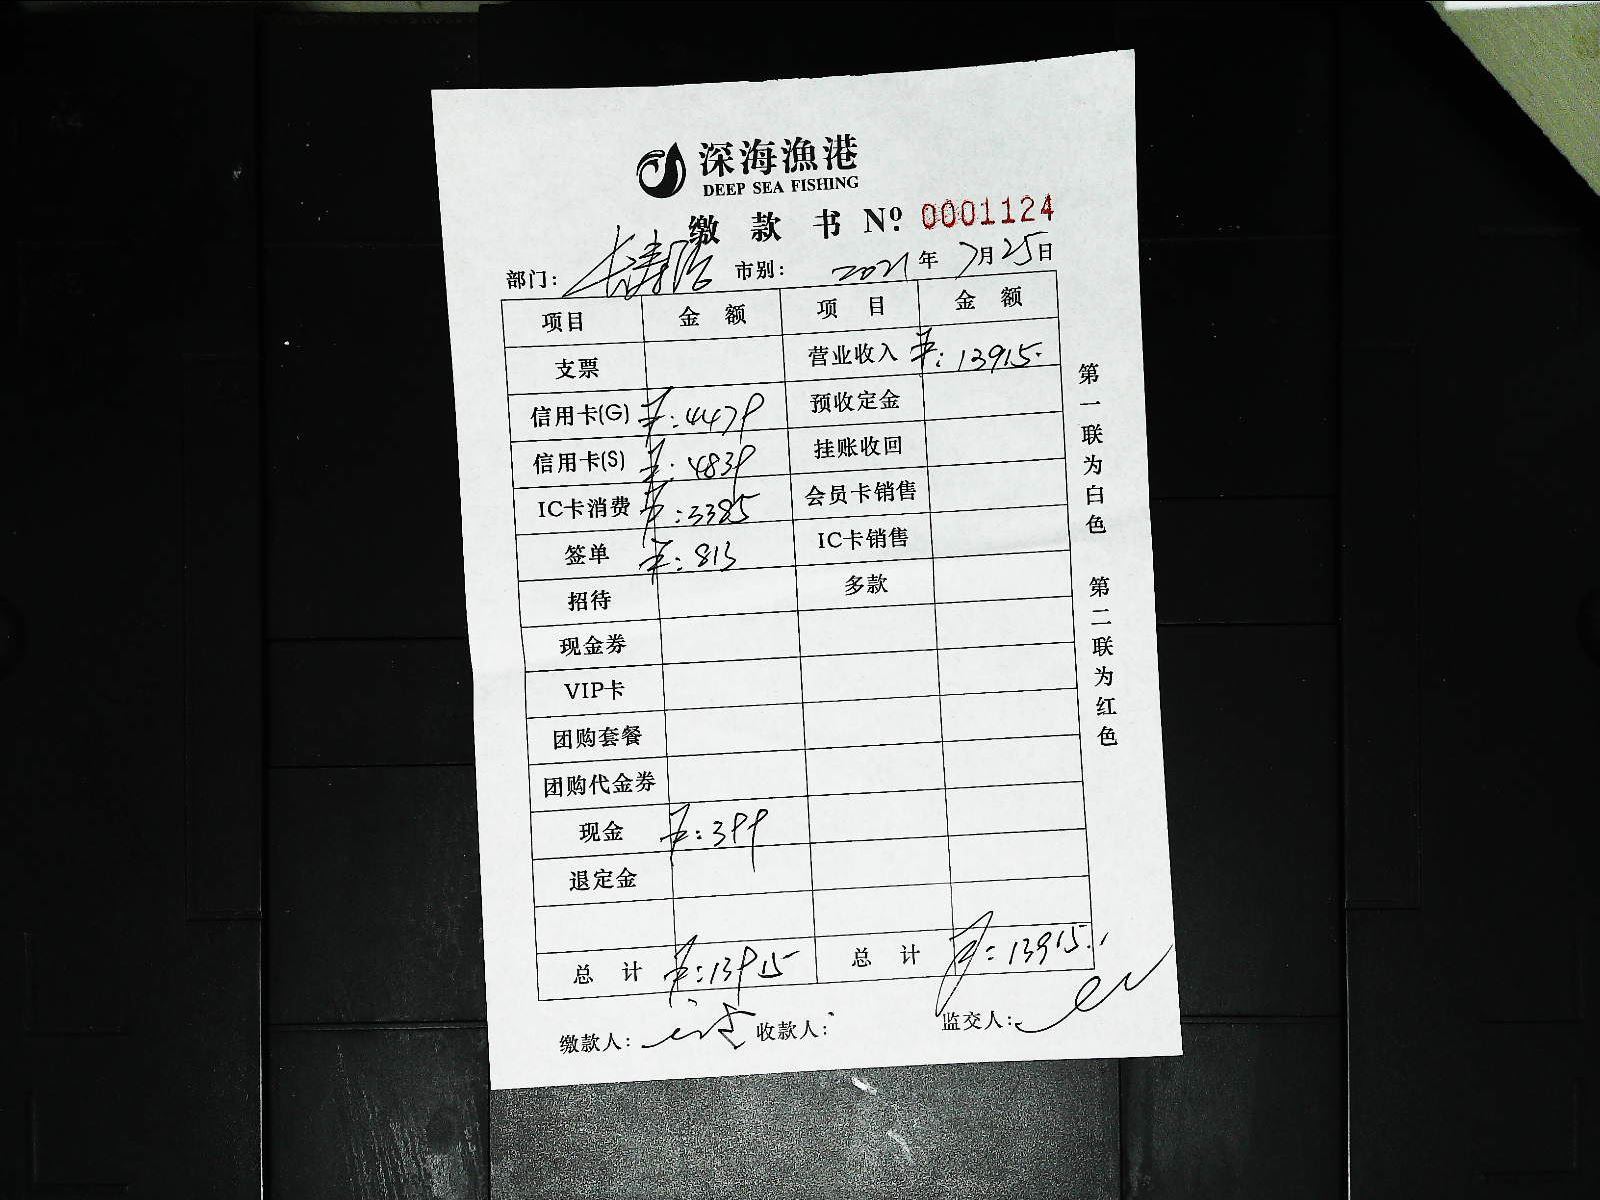 深海渔港
DEEP SEA FISHING
缴款书 Nº 0001124
部门: 市别: 2021年7月25日
项目 金额 项目 金额
支票 营业收入 ¥:13915.
信用卡(G) ¥:4479 预收定金
信用卡(S) ¥:4839 挂账收回
IC卡消费 ¥:3385 会员卡销售
签单 ¥:813 IC卡销售
招待 多款
现金券
VIP卡
团购套餐
团购代金券
现金 ¥:399
退定金
总计 ¥:13915 总计 ¥:13915.
缴款人: 收款人: 监交人:
第一联为白色 第二联为红色